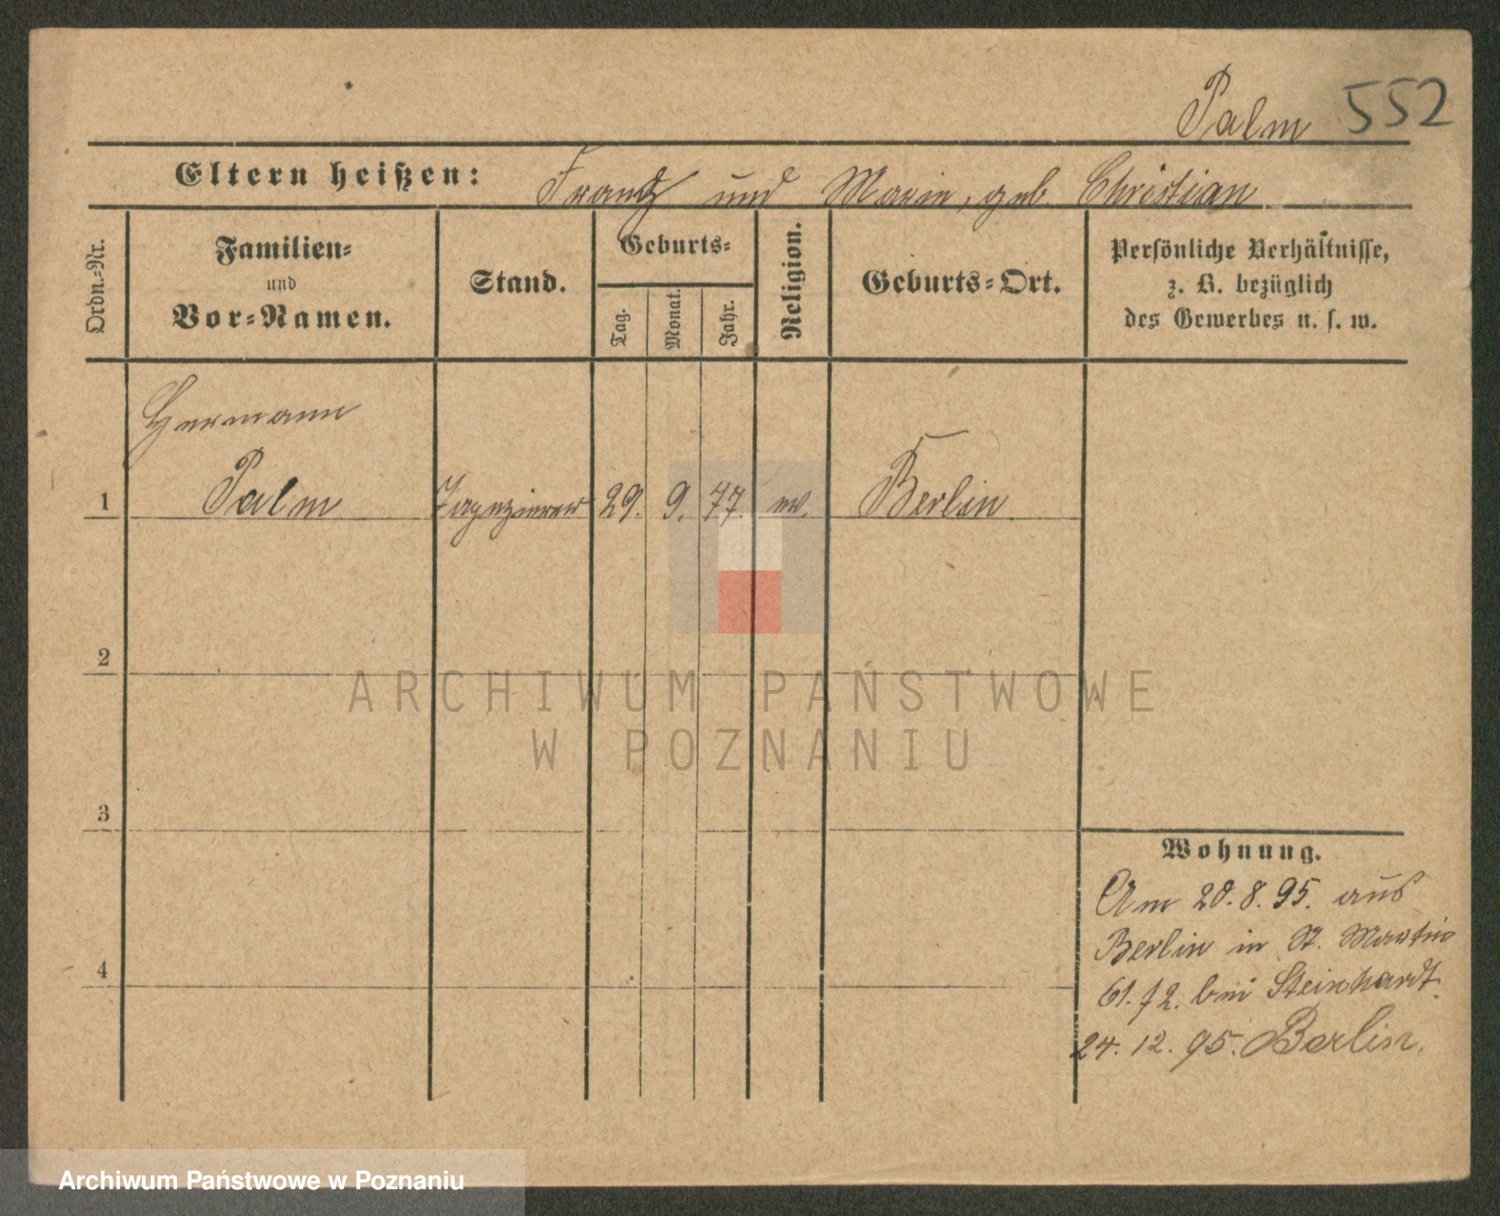 Palm 552
Eltern heißen: Frantz und Marie, geb Christian
Ordn.-Nr.
Familien-
und
Vor-Namen.
Stand.
Geburts-
Tag.
Monat.
Jahr.
Religion.
Geburts-Ort.
Persönliche Verhältnisse,
z. B. bezüglich
des Gewerbes u. s. w.
Hermann
1 Palm Tapezierer 29. 9. 77. ev. Berlin
2
ARCHIWUM PAŃSTWOWE
W POZNANIU
3
Wohnung.
Am 20.8.95. aus
Berlin in St. Martin
4
61. bei Steinhardt.
24. 12. 95. Berlin.
Archiwum Państwowe w Poznaniu